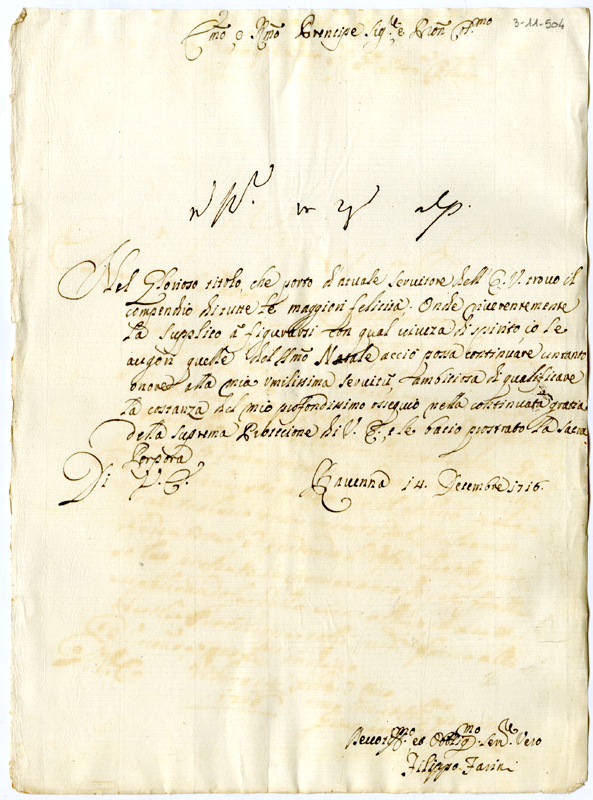 3-11-504
Emo e Rmo Prencipe Sigre e Pron Colmo
Nel Glorioso titolo, che porto d'attuale servitore dell' E. V. trovo il
compendio di tutte le maggiori felicità. Onde riverentemente
la supplico à figurarsi con qual vivezza di spirito io le
auguri quelle del SSmo Natale acciò possa continuare un tanto
onore alla mia umilissima servitù, ambiziosa di qualificare
la costanza del mio profondissimo ossequio nella continuata grazia
della suprema Protezione di V. E., e le bacio prostrato la Sacra
Porpora
Di V. E. Ravenna 14. Decembre 1716.
Devotmo ed Obbligmo Serre Vero
Filippo